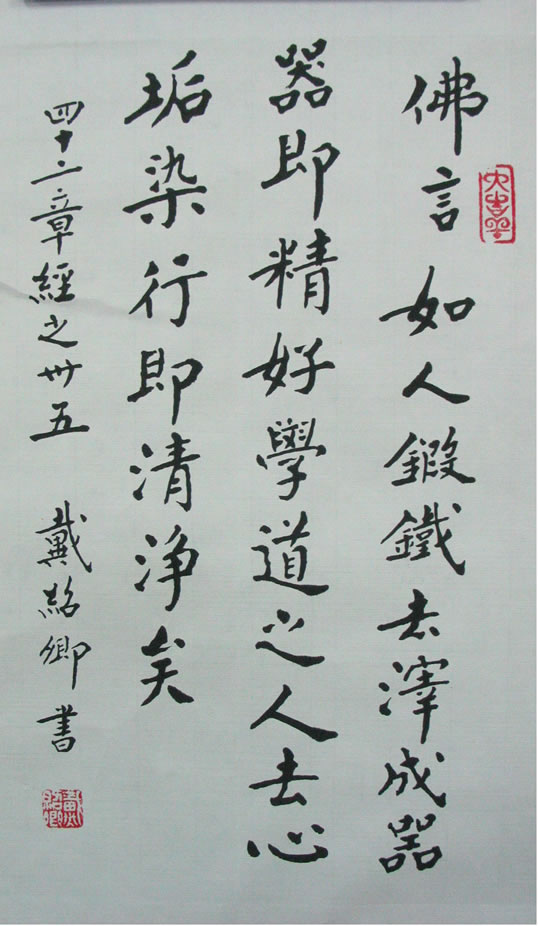 佛言如人鍛鐵去滓成器
器即精好學道之人去心
垢染行即清淨矣
四十二章經之卅五 戴紹卿書
戴紹卿